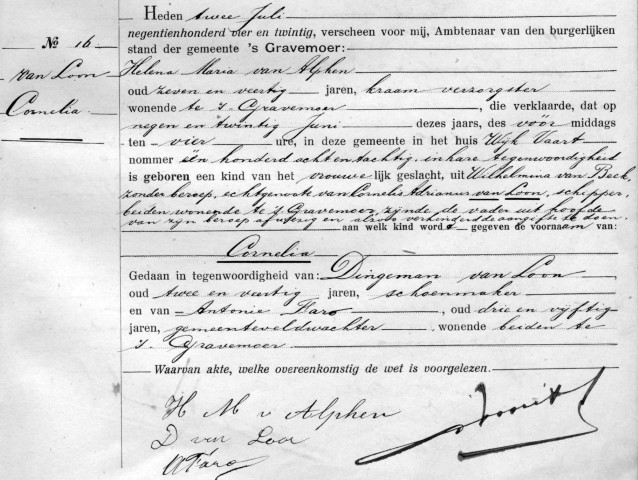 Nº 16
van Loon
Cornelia
Heden twee Juli
negentienhonderd vier en twintig, verscheen voor mij, Ambtenaar van den burgerlijken
stand der gemeente 's Gravemoer:
Helena Maria van Alphen
oud zeven en veertig jaren, kraam verzorgster
wonende te 's Gravemoer, die verklaarde, dat op
negen en twintig Juni dezes jaars, des vóór middags
ten vier ure, in deze gemeente in het huis Wijk Vaart
nommer één honderd acht en tachtig, in hare tegenwoordigheid
is geboren een kind van het vrouwelijk geslacht, uit Wilhelmina van Beek,
zonder beroep, echtgenoote van Cornelis Adrianus van Loon, schipper,
beiden wonende te 's Gravemoer, zijnde de vader uit hoofde
van zijn beroep afwezig en alzoo verhinderd de aangifte te doen.
aan welk kind wordt gegeven de voornaam van:
Cornelia
Gedaan in tegenwoordigheid van: Dingeman van Loon
oud twee en veertig jaren, schoenmaker
en van Antonie Faro, oud drie en vijftig
jaren, gemeenteveldwachter wonende beiden te
's Gravemoer
Waarvan akte, welke overeenkomstig de wet is voorgelezen.
H M v Alphen
D van Loon
A Faro